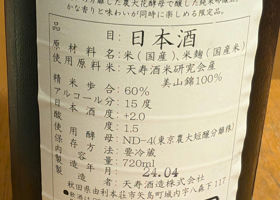 分離した農大花酵母で醸した純米吟醸
かな香りと味わいが同時に楽しめる限定品。
品目:日本酒
原材料名:米(国産)、米麹(国産米)
使用原料米:天寿酒米研究会産
美山錦100%
精米歩合:60%
アルコール分:15度
日本酒度:+2.0
酸度:1.5
使用酵母:ND-4(東京農大短醸分離株)
保存方法:要冷蔵
内容量:720ml
製造年月 24.04
製造者:天寿酒造株式会社
秋田県由利本荘市矢島町城内字八森下117